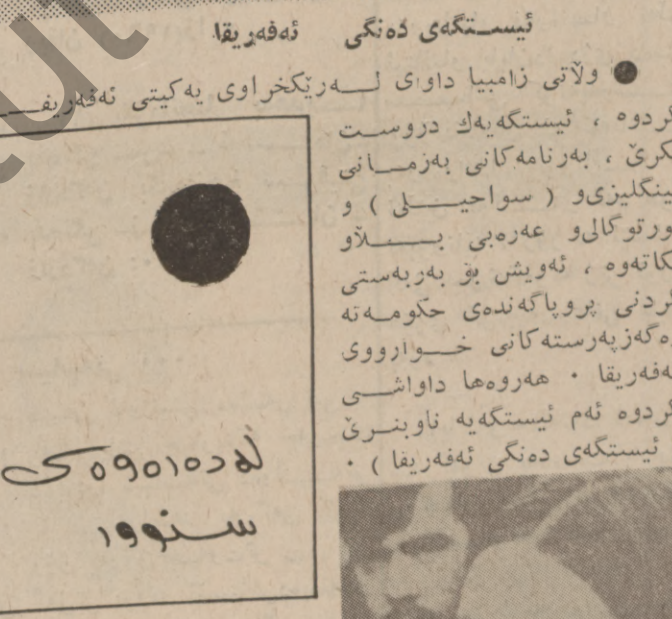 ئیستگەی دەنگی ئەفەریقا
● وڵاتی زامبیا داوای لەرێکخراوی یەکیتی ئەفەریقـ
کردوە ، ئیستگەیەك دروست
بکرێ ، بەرنامەکانی بەزمانی
ئینگلیزیو ( سواحیلی ) و
پورتوگالیو عەرەبی بڵاو
بکاتەوە ، ئەویش بۆ بەربەستی
کردنی پروپاگەندەی حکومەتە
رەگەزپەرستەکانی خوارووی
ئەفەریقا ٠ هەروەها داواشی
کردوە ئەم ئیستگەیە ناوبنرێ
ئیستگەی دەنگی ئەفەریفا ) ٠
لەدەرەوەی
سنوور